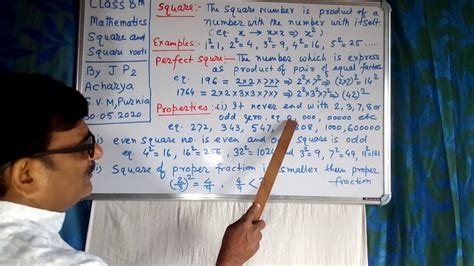 Class 8th
Mathematics
Square and
Square roots
By J P2
Acharya
S.V.M, Purnia
30-05-2020
Square:- The Square Number is product of a
number with the number with itself
(eg. x → x×x ⇒ x²)
Examples:- 1²=1, 2²=4, 3²=9, 4²=16, 5²=25 ....
Perfect squre:- The number which is express
as product of pair of equal factors
eg. 196 = 2×2×7×7 ⇒ 2²×7² ⇒ (2×7)² = 14²
1764 = 2×2×3×3×7×7 ⇒ 2²×3²×7² ⇒ (42)²
Properties:- (i) It never end with 2, 3, 7, 8 or
odd zero, eg. 000, 00000 etc
eg. 272, 343, 547, 808, 1000, 600000
even square no. is even and odd square is odd
eg. 4²=16, 16²=256, 32²=1024 and 3²=9, 7²=49, 11²=121
Square of proper fraction is smaller than proper
fraction
(2/3)² = 4/9, 4/9 <